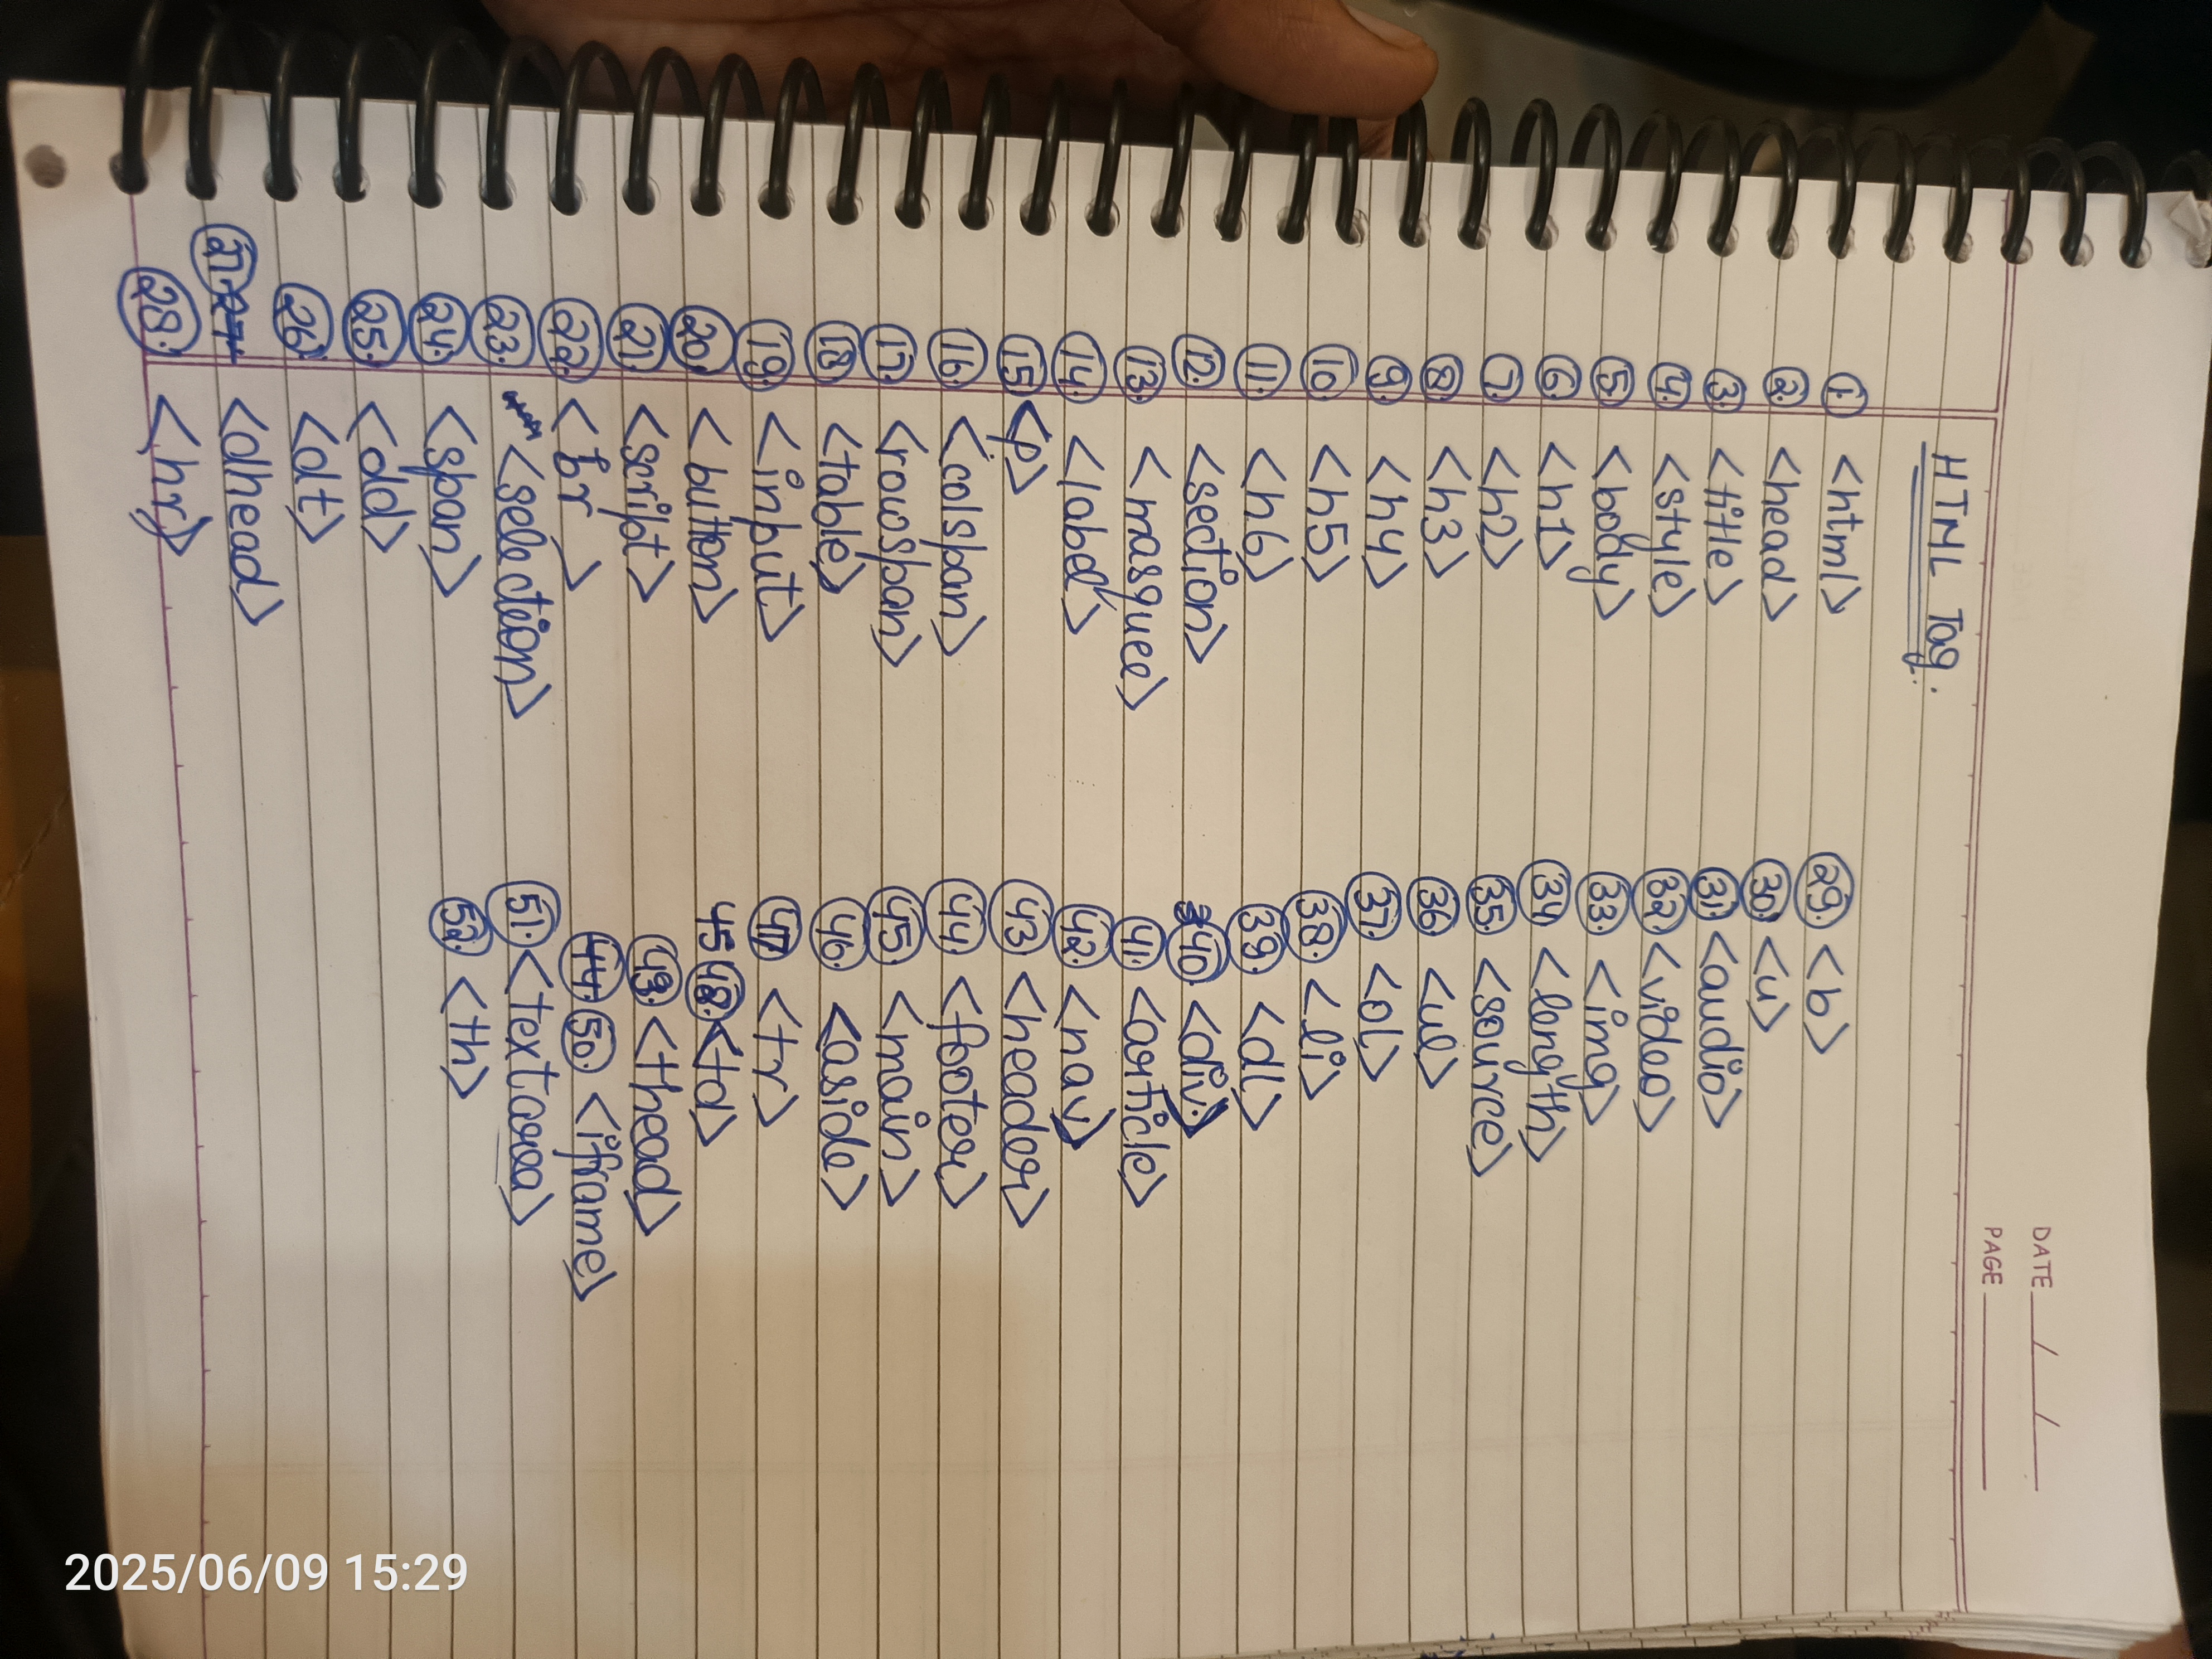 DATE __/__/__
PAGE
HTML Tag.
1. <html>
2. <head>
3. <title>
4. <style>
5. <body>
6. <h1>
7. <h2>
8. <h3>
9. <h4>
10. <h5>
11. <h6>
12. <section>
13. <masquee>
14. <label>
15. <p>
16. <colspan>
17. <rowspan>
18. <table>
19. <input>
20. <button>
21. <script>
22. <br>
23. <selection>
24. <span>
25. <dd>
26. <dt>
27. <dhead>
28. <hr>
29. <b>
30. <u>
31. <audio>
32. <video>
33. <img>
34. <length>
35. <source>
36. <ul>
37. <ol>
38. <li>
39. <dl>
40. <div>
41. <article>
42. <nav>
43. <header>
44. <footer>
45. <main>
46. <aside>
47. <tr>
45 48. <td>
49. <thead>
44. 50. <iframe>
51. <textarea>
52. <th>
2025/06/09 15:29